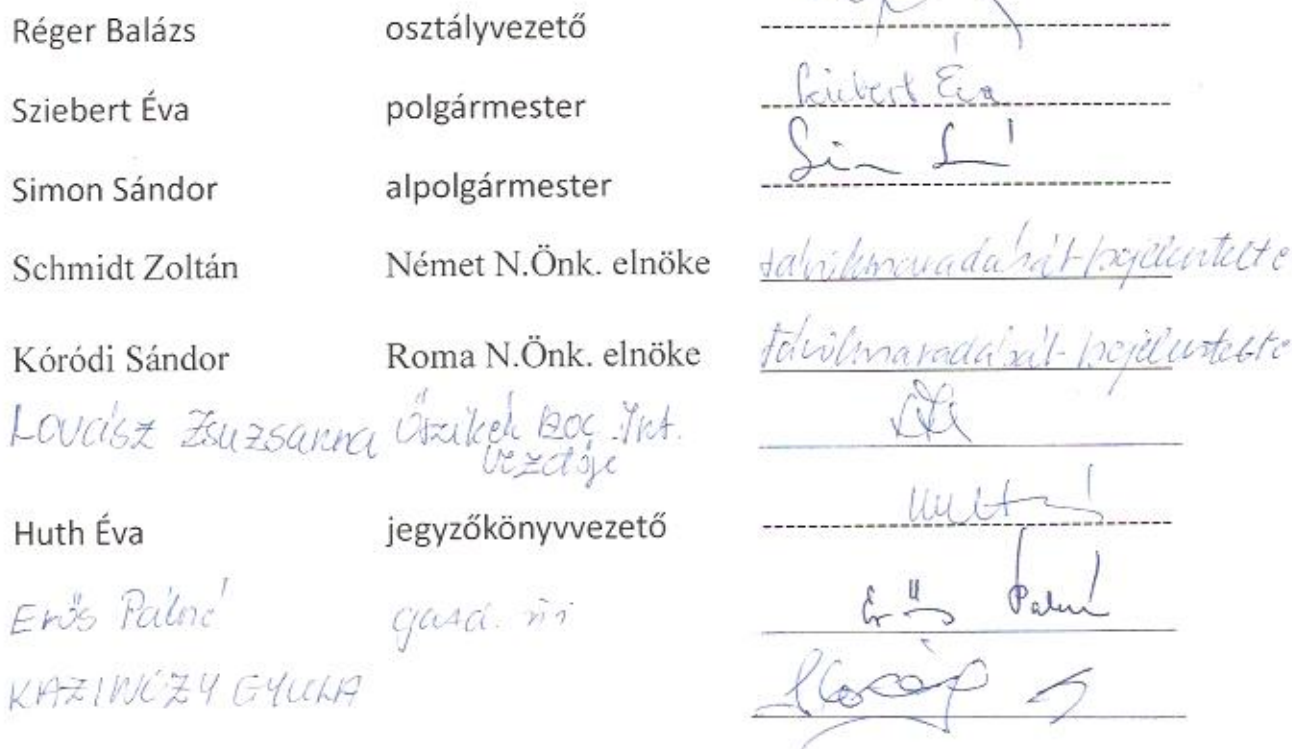 Réger Balázs osztályvezető
Sziebert Éva polgármester Sziebert Éva
Simon Sándor alpolgármester
Schmidt Zoltán Német N.Önk. elnöke távolmaradását bejelentette
Kóródi Sándor Roma N.Önk. elnöke távolmaradását bejelentette
Lovász Zsuzsanna Őszikék Szoc. Int.
vezetője
Huth Éva jegyzőkönyvvezető
Erős Pálné gazd. üi Erős Pálné
KAZINCZY GYULA